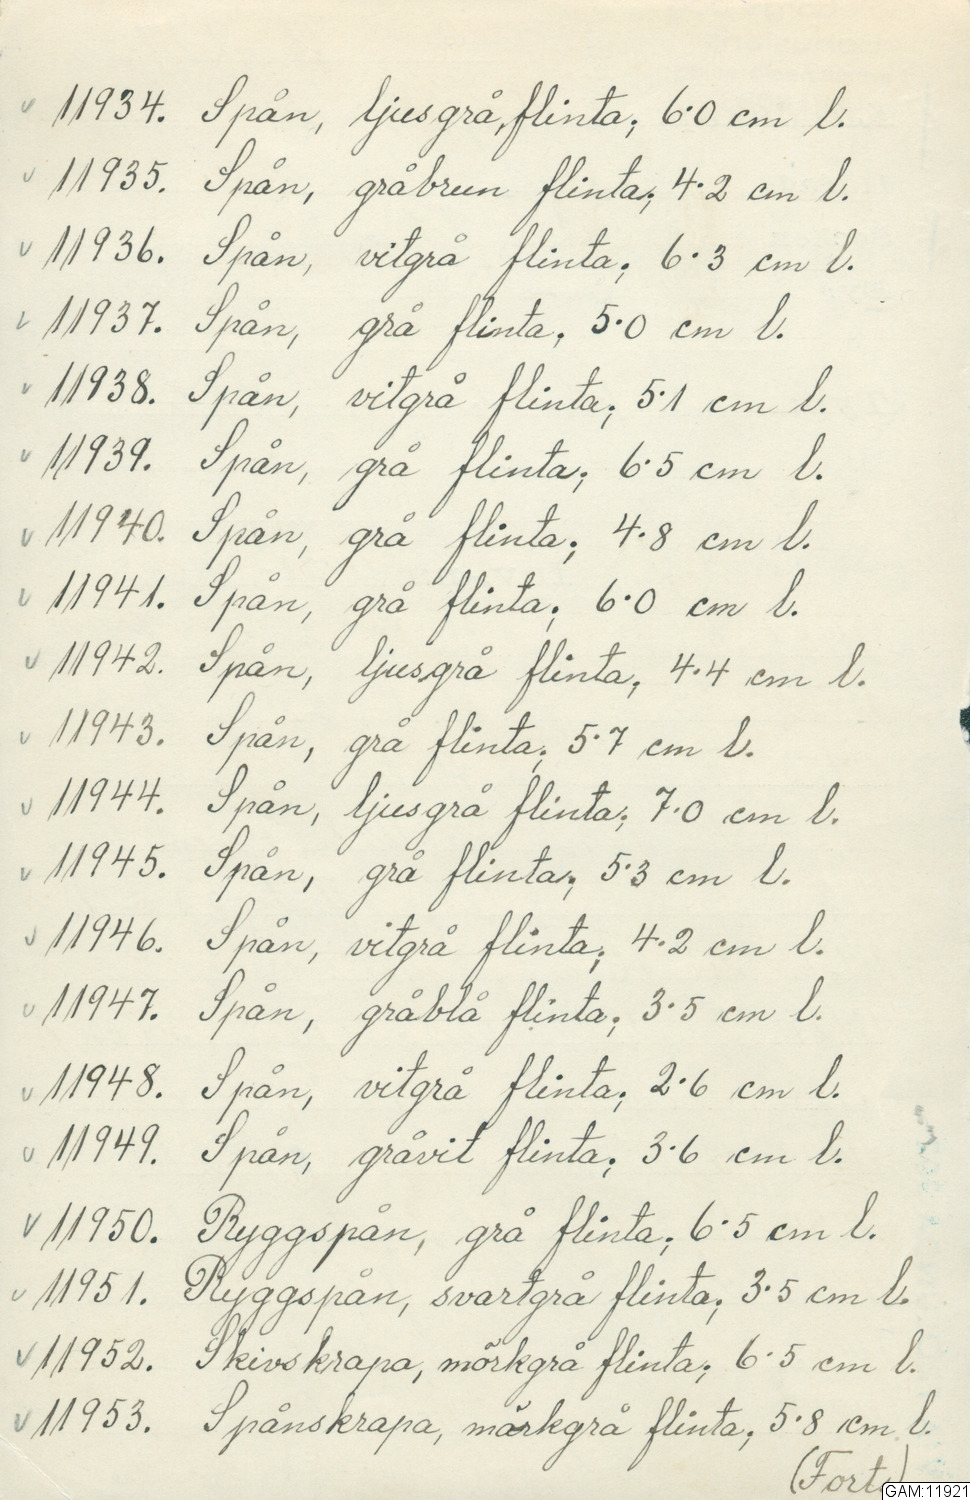 v 11934. Spån, ljusgrå, flinta; 6·0 cm l.
v 11935. Spån, gråbrun flinta; 4·2 cm l.
v 11936. Spån, vitgrå flinta; 6·3 cm l.
v 11937. Spån, grå flinta; 5·0 cm l.
v 11938. Spån, vitgrå flinta; 5·1 cm l.
v 11939. Spån, grå flinta; 6·5 cm l.
v 11940. Spån, grå flinta; 4·8 cm l.
v 11941. Spån, grå flinta; 6·0 cm l.
v 11942. Spån, ljusgrå flinta; 4·4 cm l.
v 11943. Spån, grå flinta; 5·7 cm l.
v 11944. Spån, ljusgrå flinta; 7·0 cm l.
v 11945. Spån, grå flinta; 5·3 cm l.
v 11946. Spån, vitgrå flinta; 4·2 cm l.
v 11947. Spån, gråblå flinta; 3·5 cm l.
v 11948. Spån, vitgrå flinta; 2·6 cm l.
v 11949. Spån, gråvit flinta; 3·6 cm l.
v 11950. Ryggspån, grå flinta; 6·5 cm l.
v 11951. Ryggspån, svartgrå flinta; 3·5 cm l.
v 11952. Skivskrapa, mörkgrå flinta; 6·5 cm l.
v 11953. Spånskrapa, mörkgrå flinta; 5·8 cm l.
(Forts)
GAM:11921